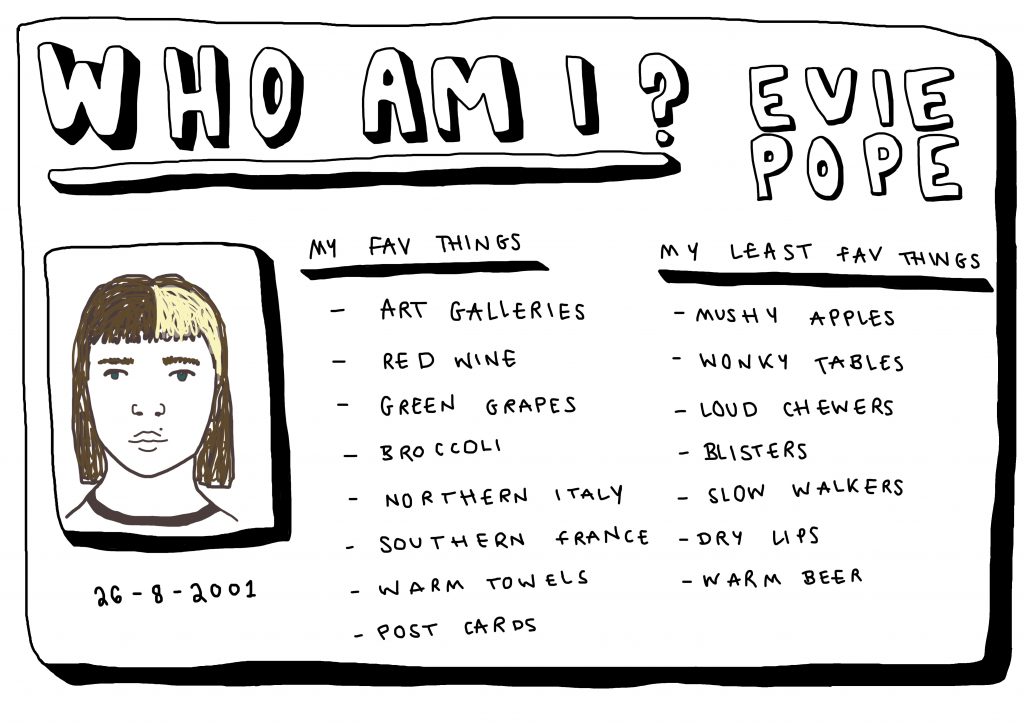 WHO AM I?
EVIE
POPE
MY FAV THINGS
- ART GALLERIES
- RED WINE
- GREEN GRAPES
- BROCCOLI
- NORTHERN ITALY
- SOUTHERN FRANCE
- WARM TOWELS
- POST CARDS
MY LEAST FAV THINGS
- MUSHY APPLES
- WONKY TABLES
- LOUD CHEWERS
- BLISTERS
- SLOW WALKERS
- DRY LIPS
- WARM BEER
26-8-2001